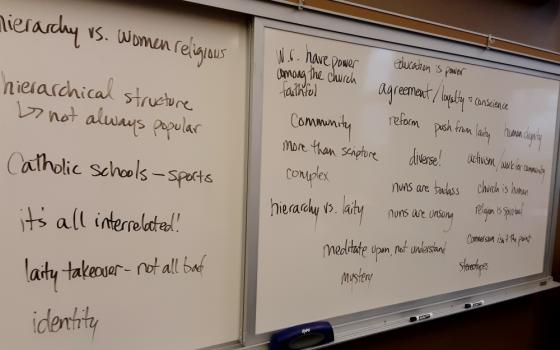 hierarchy vs. women religious
hierarchical structure
not always popular
Catholic schools - sports
it's all interrelated!
laity takeover - not all bad
identity
w.r. have power
among the church
faithful
Community
more than scripture
complex
hierarchy vs. laity
education is power
agreement/loyalty vs conscience
reform
push from laity
human dignity
diverse!
activism/work in community
nuns are badass
church is human
nuns are unsung
religion is spiritual
conversion isn't the point
meditate upon, not understand
mystery
stereotypes